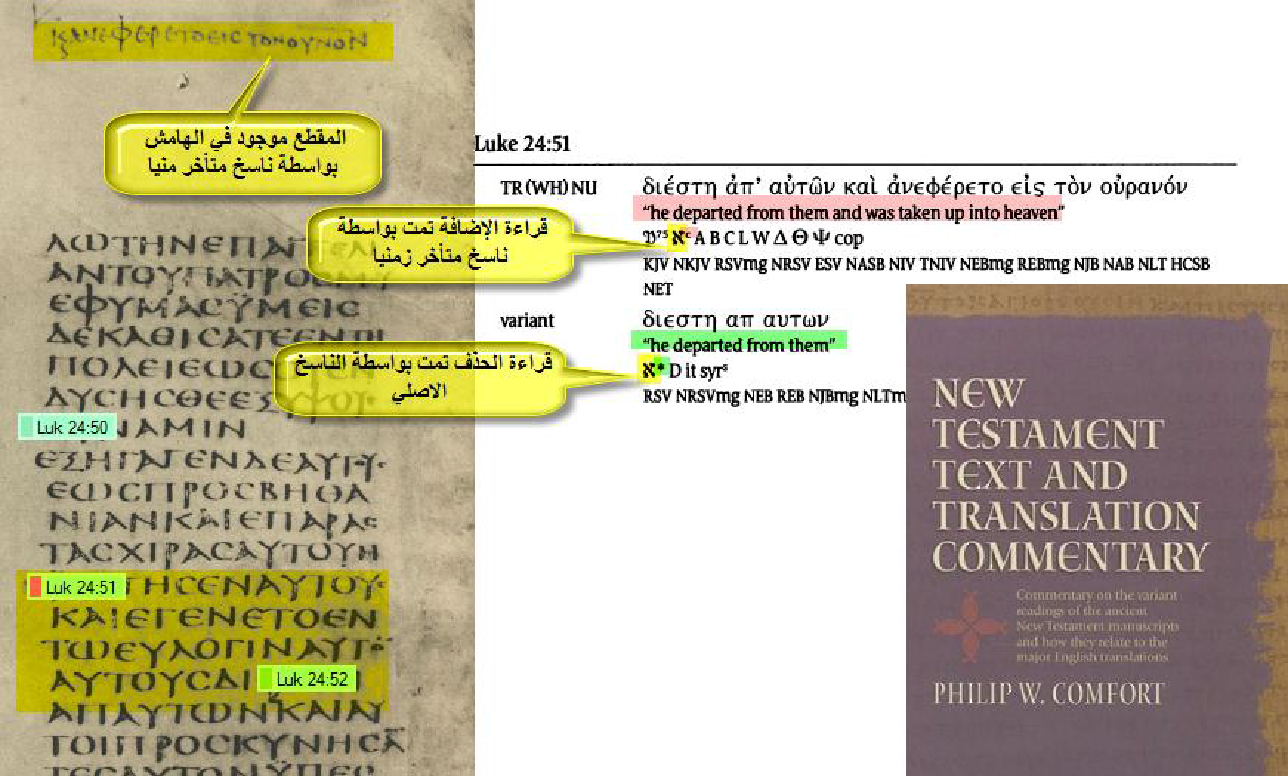 ΚΑΝΕΦΕΡΕΤΟΕΙϹΤΟΝΟΥΝΟΝ
المقطع موجود في الهامش
بواسطة ناسخ متأخر منيا
ΕΦΥΜΑϹΫΜΕΙϹ
Luk 24:50
ΝΑΜΙΝ
ΕΩϹΠΡΟϹΒΗΘΑ
ΝΙΑΝΚΑΙΕΠΑΡΑϹ
ΤΑϹΧΙΡΑϹΑΥΤΟΥΗ
Luk 24:51
ΤΗϹΕΝΑΥΤΟΥϹ
ΚΑΙΕΓΕΝΕΤΟΕΝ
ΤΩΕΥΛΟΓΙΝΑΥΤΟ
ΑΥΤΟΥϹΔΙ
Luk 24:52
ΑΠΑΥΤΩΝΚΑΙΑΥ
ΤΟΙΠΡΟϹΚΥΝΗϹΑ̅
ΤΕϹΑΥΤΟΝΫΠΕϹ
Luke 24:51
TR (WH) NU
διέστη ἀπ’ αὐτῶν καὶ ἀνεφέρετο εἰς τὸν οὐρανόν
“he departed from them and was taken up into heaven”
𝔓⁷⁵ ℵᶜ A B C L W Δ Θ Ψ cop
KJV NKJV RSVmg NRSV ESV NASB NIV TNIV NEBmg REBmg NJB NAB NLT HCSB
NET
قراءة الإضافة تمت بواسطة
ناسخ متأخر زمنيا
variant
διεστη απ αυτων
“he departed from them”
ℵ* D it syrˢ
RSV NRSVmg NEB REB NJBmg NLTm
قراءة الحذف تمت بواسطة الناسخ
الاصلي
NEW
TESTAMENT
TEXT AND
TRANSLATION
COMMENTARY
Commentary on the variant
readings of the ancient
New Testament manuscripts
and how they relate to the
major English translations
PHILIP W. COMFORT